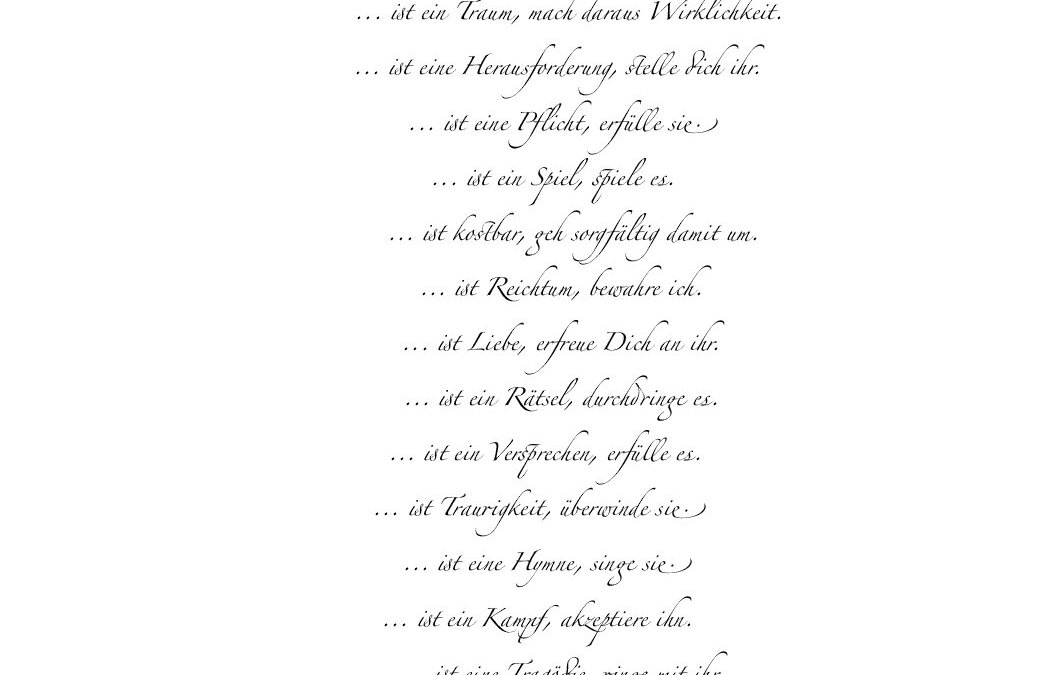 ... ist ein Traum, mach daraus Wirklichkeit.
... ist eine Herausforderung, stelle dich ihr.
... ist eine Pflicht, erfülle sie.
... ist ein Spiel, spiele es.
... ist kostbar, geh sorgfältig damit um.
... ist Reichtum, bewahre ich.
... ist Liebe, erfreue Dich an ihr.
... ist ein Rätsel, durchdringe es.
... ist ein Versprechen, erfülle es.
... ist Traurigkeit, überwinde sie.
... ist eine Hymne, singe sie.
... ist ein Kampf, akzeptiere ihn.
ist eine Tragödie, ringe mit ihr